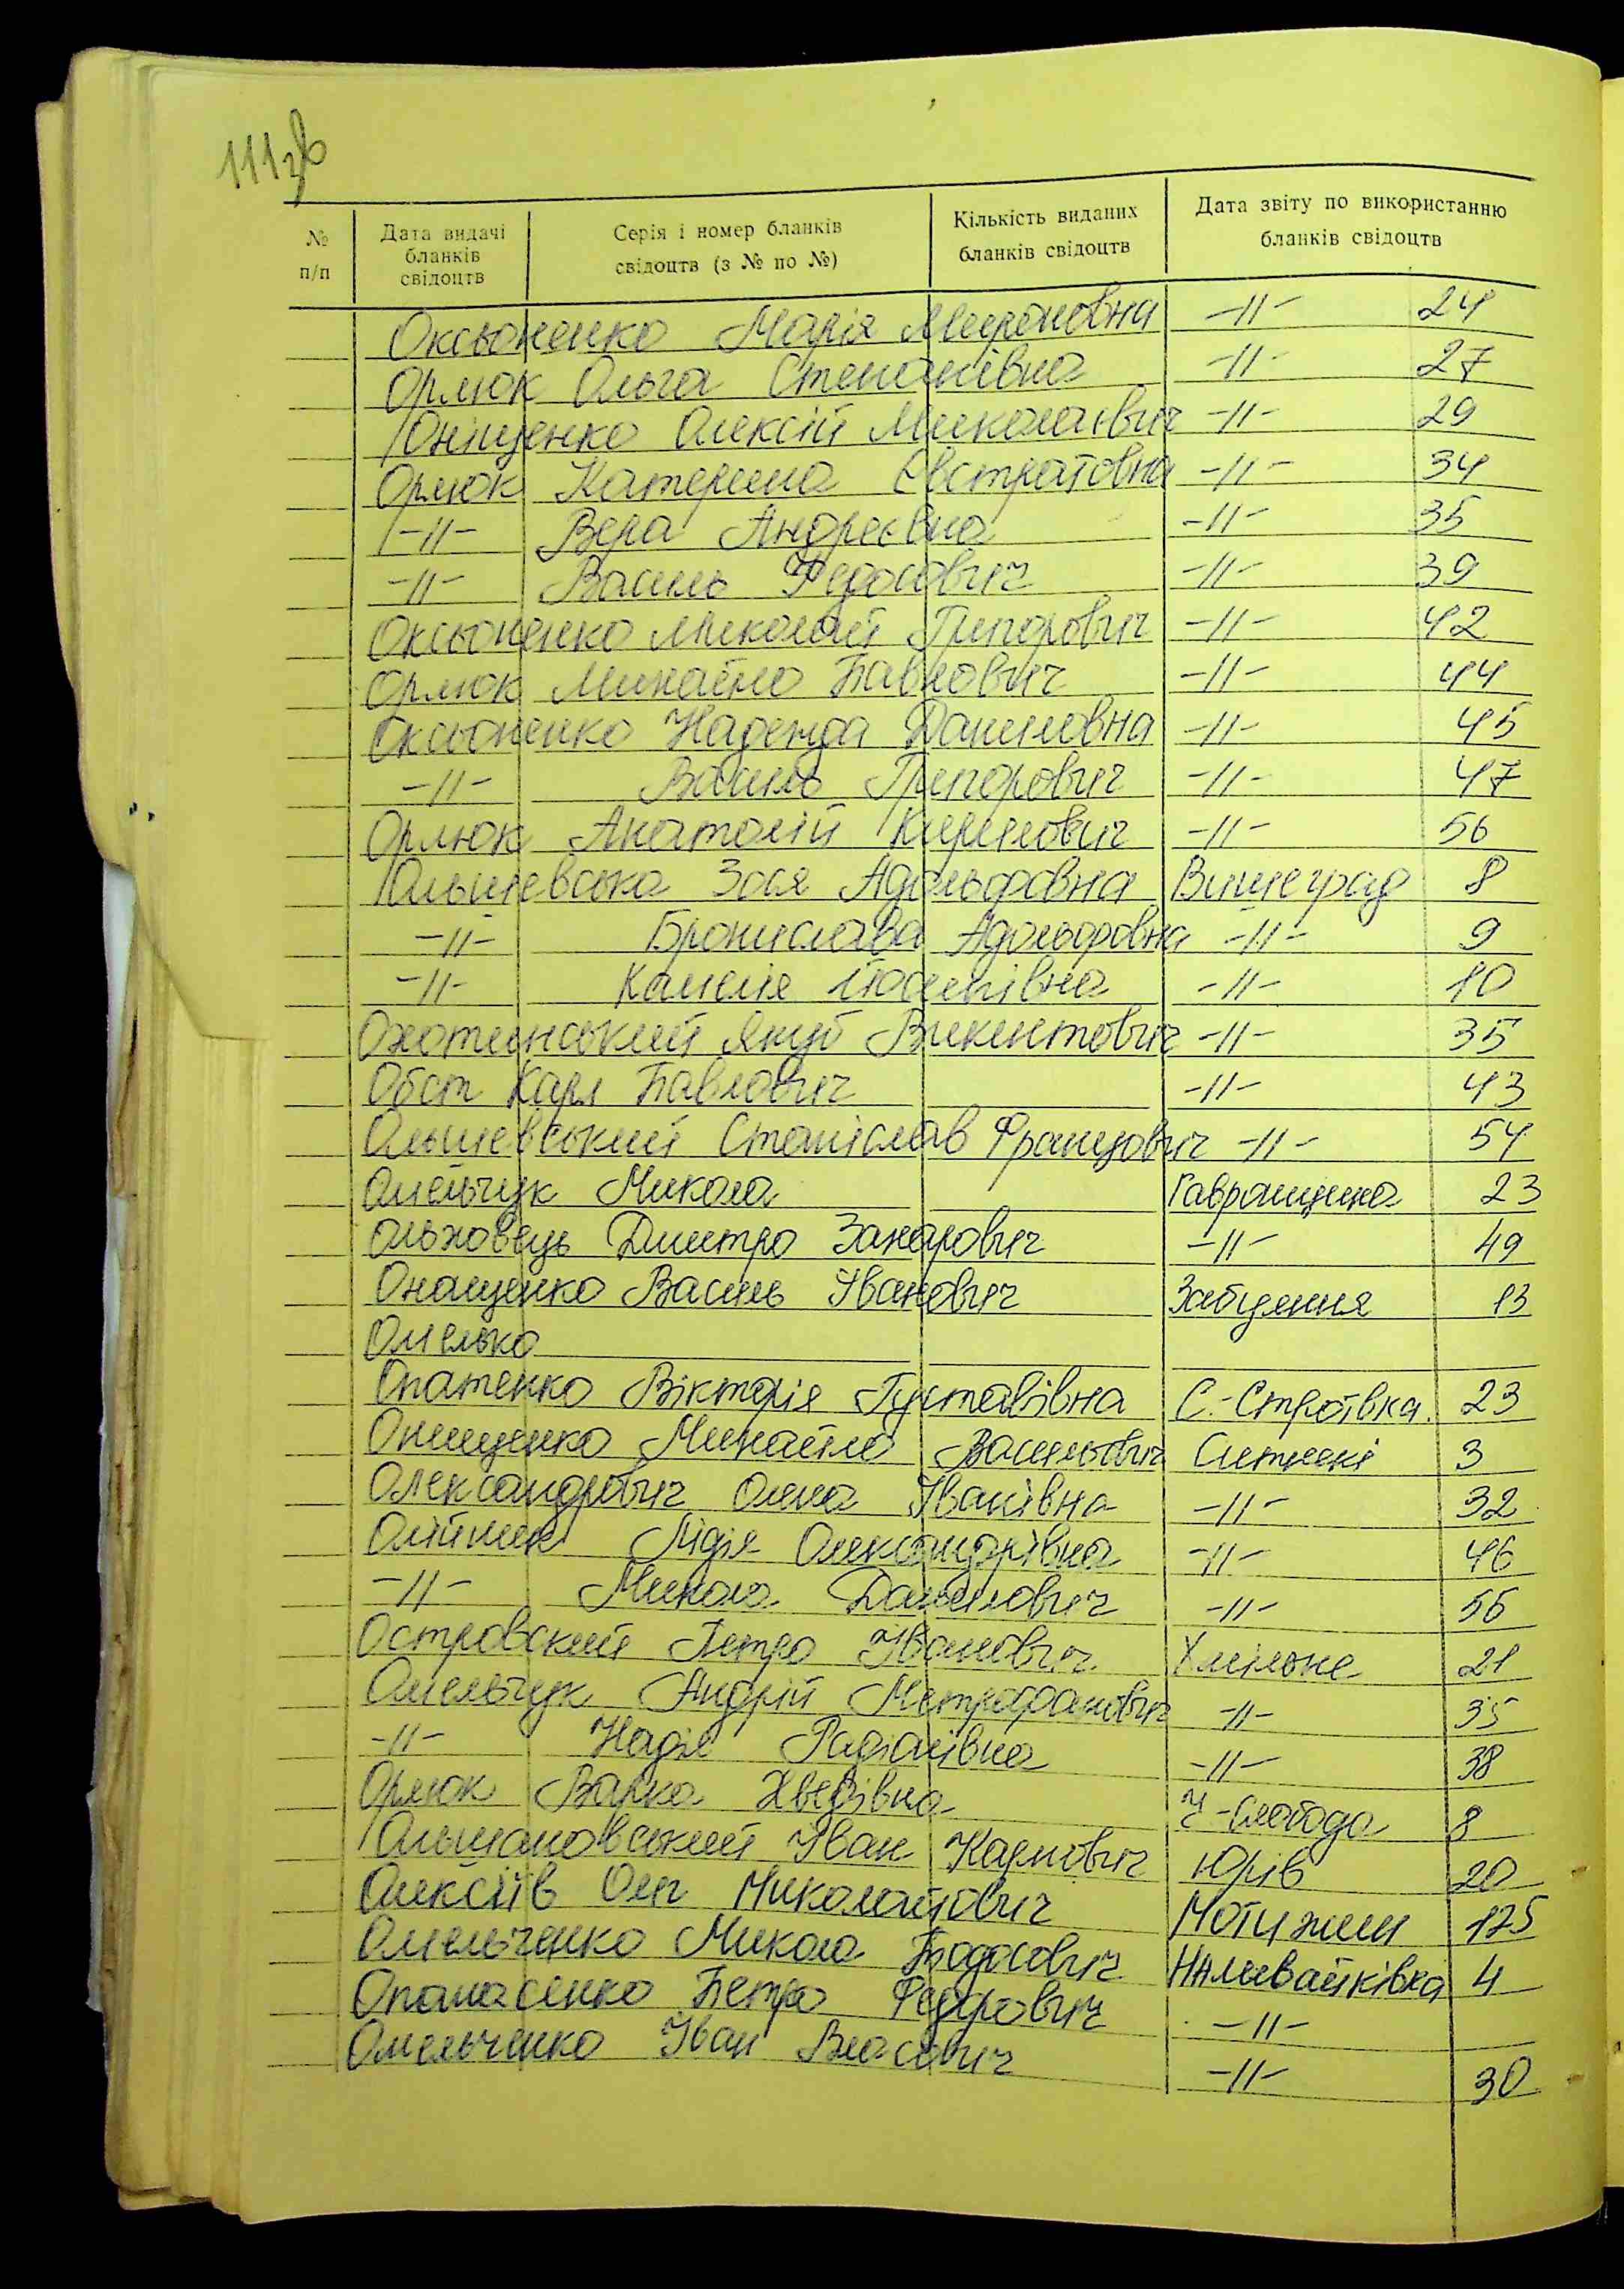 111зв
№ п/п
Дата видачі бланків свідоцтв
Серія і номер бланків свідоцтв (з № по №)
Кількість виданих бланків свідоцтв
Дата звіту по використанню бланків свідоцтв
Оксьоненко Марія Мироновна -//- 24
Орлюк Ольга Степанівна -//- 27
Оніщенко Олексій Миколаєвич -//- 29
Орлюк Катерина Євстратовна -//- 34
-//- Вера Андреєвна -//- 35
-//- Василь Федосович -//- 39
Оксьоненко Миколай Григорович -//- 42
Орлюк Михайло Павлович -//- 44
Оксьоненко Надежда Даниловна -//- 45
-//- Василь Григорович -//- 47
Орлюк Анатолій Кирилович -//- 56
Ольшевська Зося Адольфовна Вишеград 8
-//- Бронислава Адольфовна -//- 9
-//- Камелія Йосипівна -//- 10
Охотинський Якуб Викентович -//- 35
Обст Карл Павлович -//- 43
Ольшевський Станіслав Францович -//- 54
Омельчук Микола Гавронщина 23
Ольховець Дмитро Захарович -//- 49
Онащенко Василь Іванович Забуяння 13
Омелько
Опатенко Вікторія Густавівна С.-Строївка. 23
Онищенко Михайло Васильович Ситняки 3
Олександрович Олена Іванівна -//- 32
Олійник Лідія Олександрівна -//- 46
-//- Микола Данилович -//- 56
Островский Петро Іванович Хмільне 21
Омельчук Андрій Митрофанович -//- 35
-//- Надія Радіонівна -//- 38
Орлюк Варка Хведівна Ч-Слобода 8
Ольшановський Іван Карпович Юрів 20
Олексіїв Олег Миколайович Мотижин 125
Омельченко Микола Тодосович Наливайківка 4
Опанасенко Петро Федорович -//-
Омельченко Іван Власович -//- 30